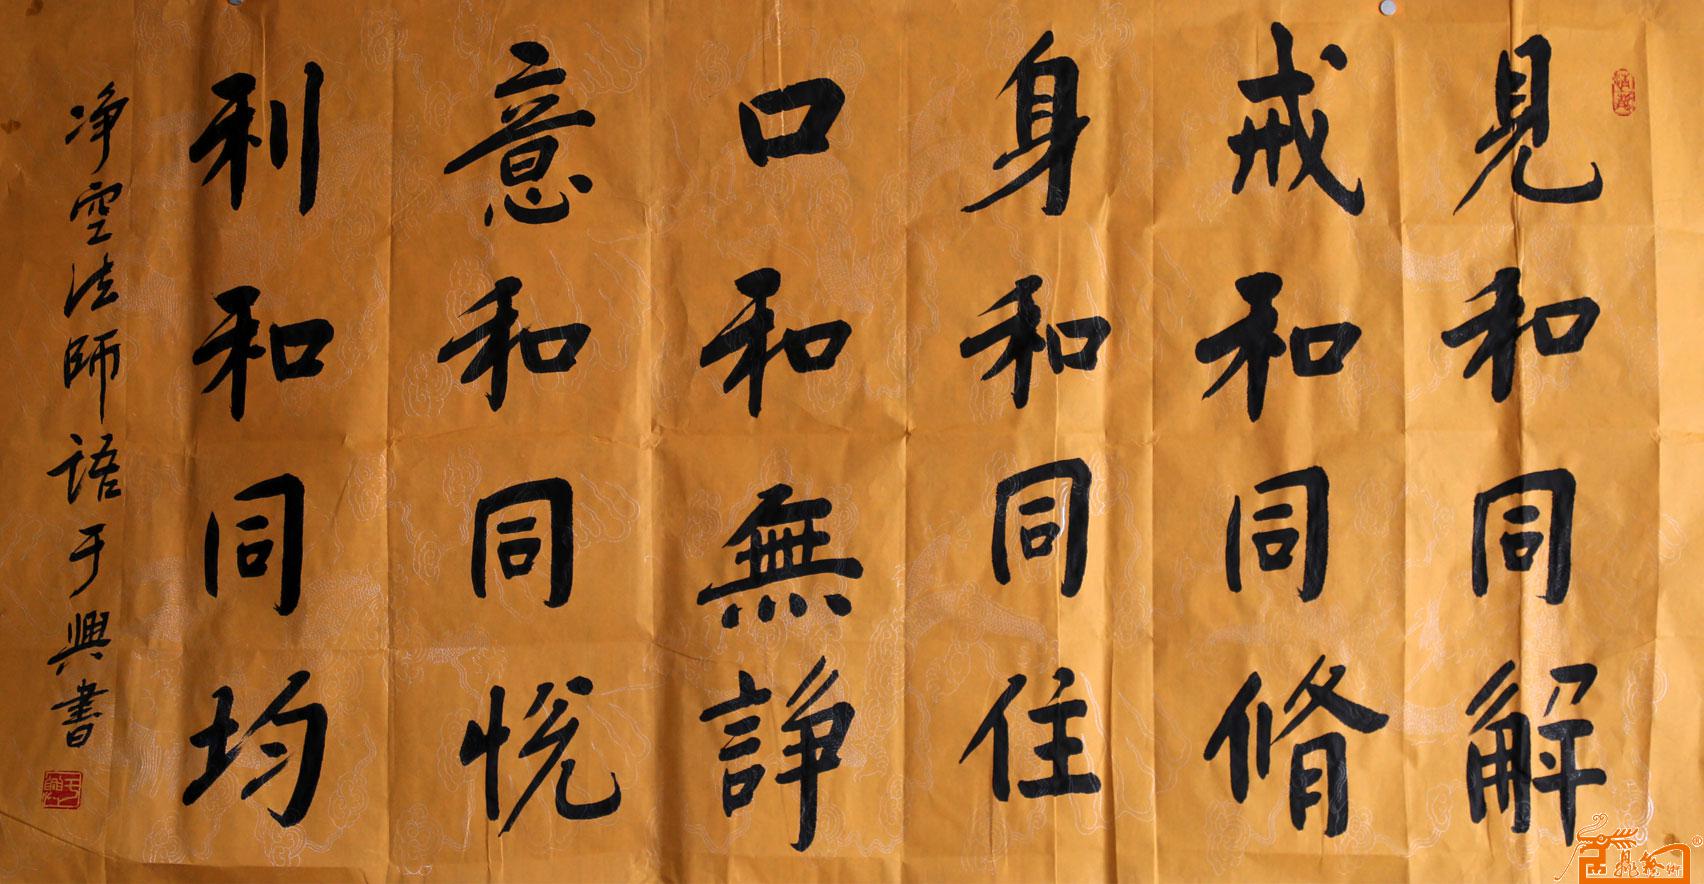 見和同解
戒和同脩
身和同住
口和無諍
意和同悦
利和同均
净空法師語于興書